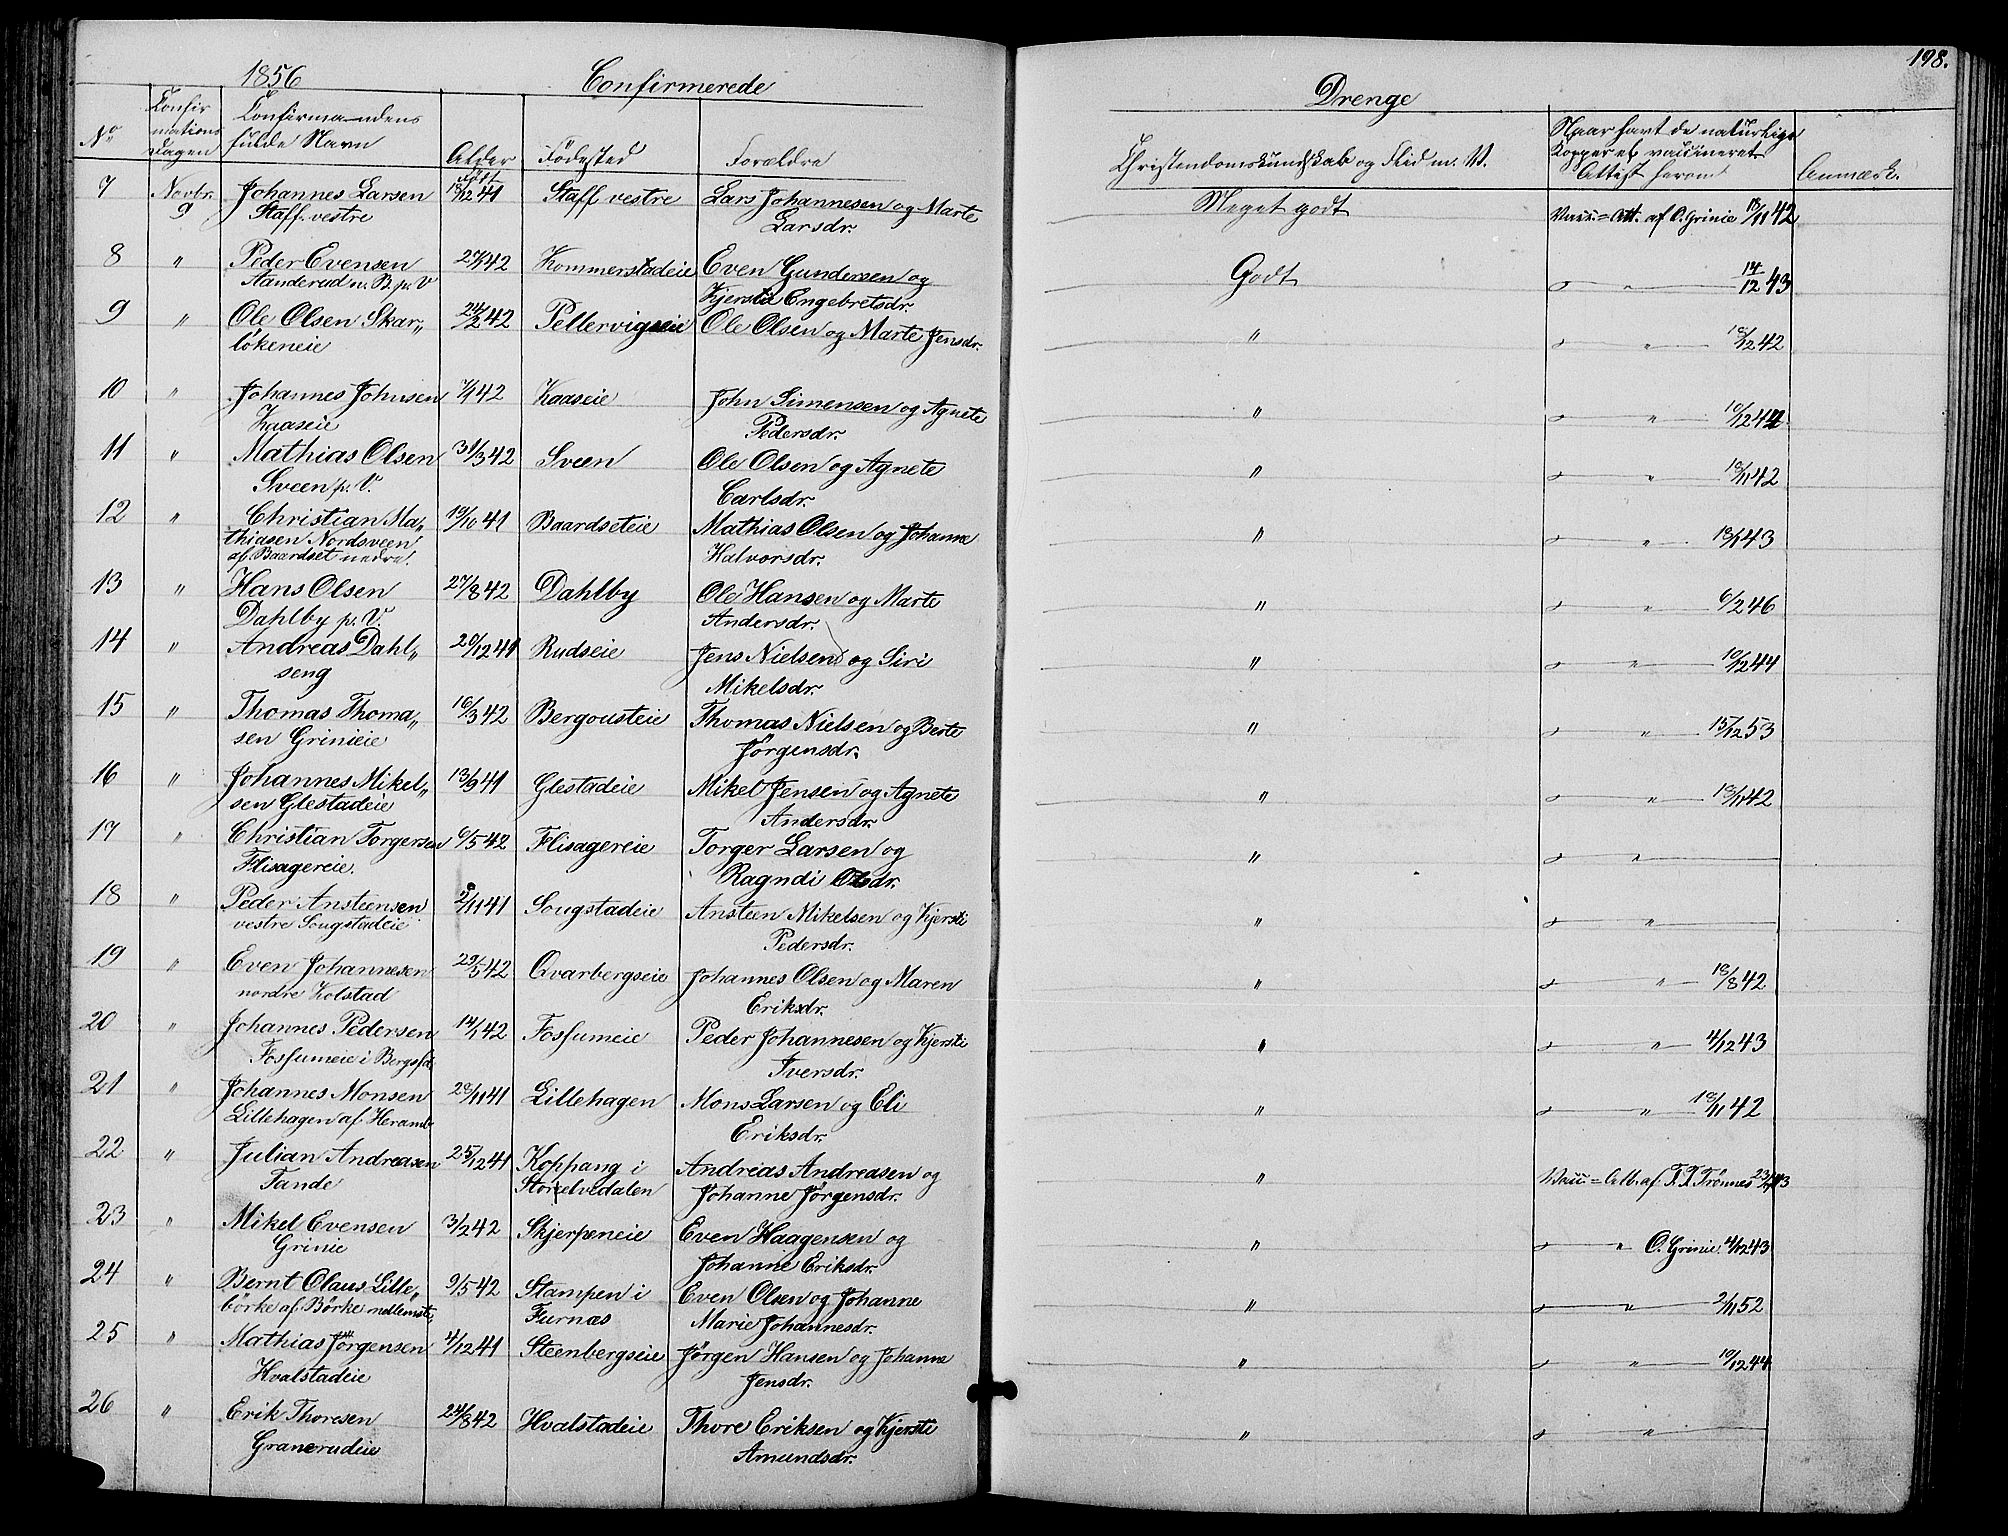 198.
1856 Confirmerede Drenge
No Confirmations Dagen Confirmandens fulde Navn Alder Födested Forældre Christendomskundskab og Flid m. V. Naar havt de naturlige Kopper el. vaccineret Attest herom Anmærk.
født
7 Novbr. Johannes Larsen 41 Staff vestre Lars Johannesen og Marte Meget godt Vacc. = Att. af O. Grinie 42
9 Staff vestre Larsdr.
8 " Peder Evensen 42 Kommerstadeie Even Gundersen og Godt " 14/12 43
Aanderud n. B. p. V Kjersti Engebretsdr.
9 " Ole Olsen Skar„ 24/2 42 Pellervigseie Ole Olsen og Marte Jensdr. " " 42
lökeneie
10 " Johannes Johnsen 42 Kaaseie John Simensen og Agnete " " 10/12
Kaaseie Pedersdr.
11 " Mathias Olsen 31/3 42 Sveen Ole Olsen og Agnete " " 42
Sveen p. V. Carlsdr.
12 " Christian Ma„ 19/10 41 Baardseteie Mathias Olsen og Johanne " " 43
thiasen Nordsveen Halvorsdr.
af Baardset nedre.
13 " Hans Olsen 27/8 42 Dahlby Ole Hansen og Marte " " 6/2 46
Dahlby p. V. Andersdr.
14 " Andreas Dahl„ 20/12 41 Rudseie Jens Nielsen og Siri " " 10/12 44
seng Mikelsdr.
15 " Thomas Thoma„ 16/3 42 Bergousteie Thomas Nielsen og Berte " " 15/12 53
sen Grinieie Jörgensdr.
16 " Johannes Mikel„ 13/9 41 Glestadeie Mikel Jensen og Agnete " " 42
sen Glestadeie Andersdr.
17 " Christian Torgersen 6/5 42 Flisagereie Torger Larsen og " "
Flisagereie. Ragndi Olsdr.
18 " Peder Ansteensen 41 Sougstadeie Ansteen Mikelsen og Kjersti " "
vestre Sougstadeie Pedersdr.
19 " Even Johannesen 29/5 42 Qvarbergseie Johannes Olsen og Maren " " 42
nordre Kolstad Eriksdr.
20 " Johannes Pedersen 14/1 42 Fosfumeie Peder Johannesen og Kjersti " " 4/12 43
Fosfumeie i Iversdr.
21 " Johannes Monsen 41 Lillehagen Mons Larsen og Eli " " 42
Lillehagen af Heramb Eriksdr.
22 " Julian Andreasen 25/12 41 Koppang i Andreas Andreasen og " Vacc = Att. af Trønnes
Tande Storelvedalen Johanne Jørgensdr.
23 " Mikel Evensen 3/2 42 Skjerpeneie Even Haagensen og " " O. Grinie 4/12 43
Grinie Johanne Eriksdr.
24 " Bernt Olaus Lille„ 9/5 42 Stampen i Even Olsen og Johanne " " 2/11 52
börke af Börke mellemste, Furnæs Marie Johannesdr.
25 " Mathias Jörgensen 4/12 41 Steenbergseie Jørgen Hansen og Johanne " " 10/12 44
Hvalstadeie Jensdr.
26 " Erik Thoresen 24/8 42 Hvalstadeie Thore Eriksen og Kjersti " "
Granerudeie Amundsdr.